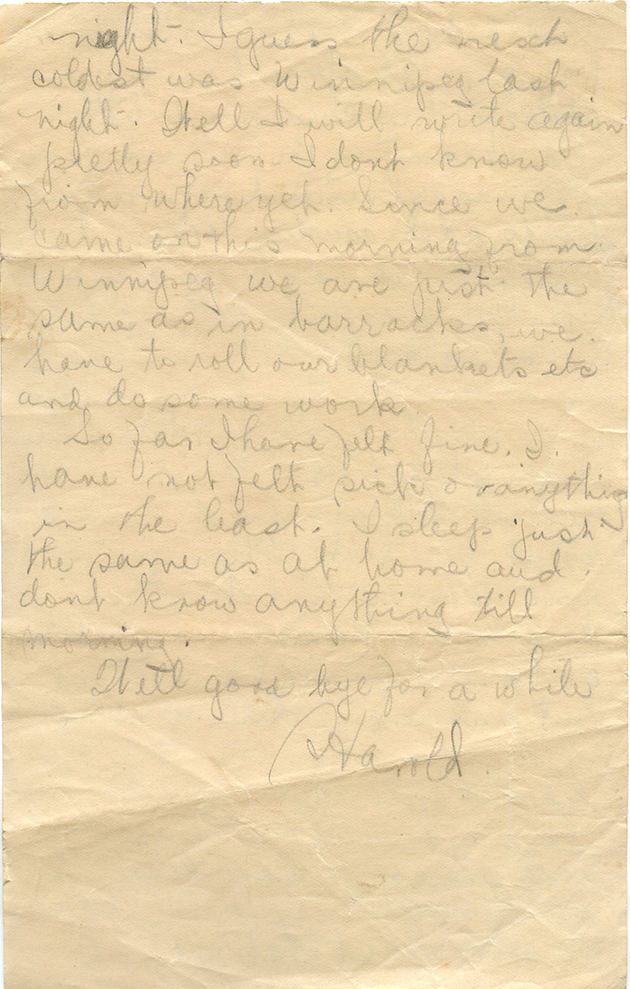 night. I guess the next
coldest was Winnipeg last
night. Well I will write again
pretty soon I dont know
from where yet. Since we
came on this morning from
Winnipeg we are just the
same as in barracks, we
have to roll our blankets etc
and do some work.
So far I have felt fine. I
have not felt sick or anything
in the least. I sleep just
the same as at home and
dont know anything till
morning.
Well good bye for a while
Harold.